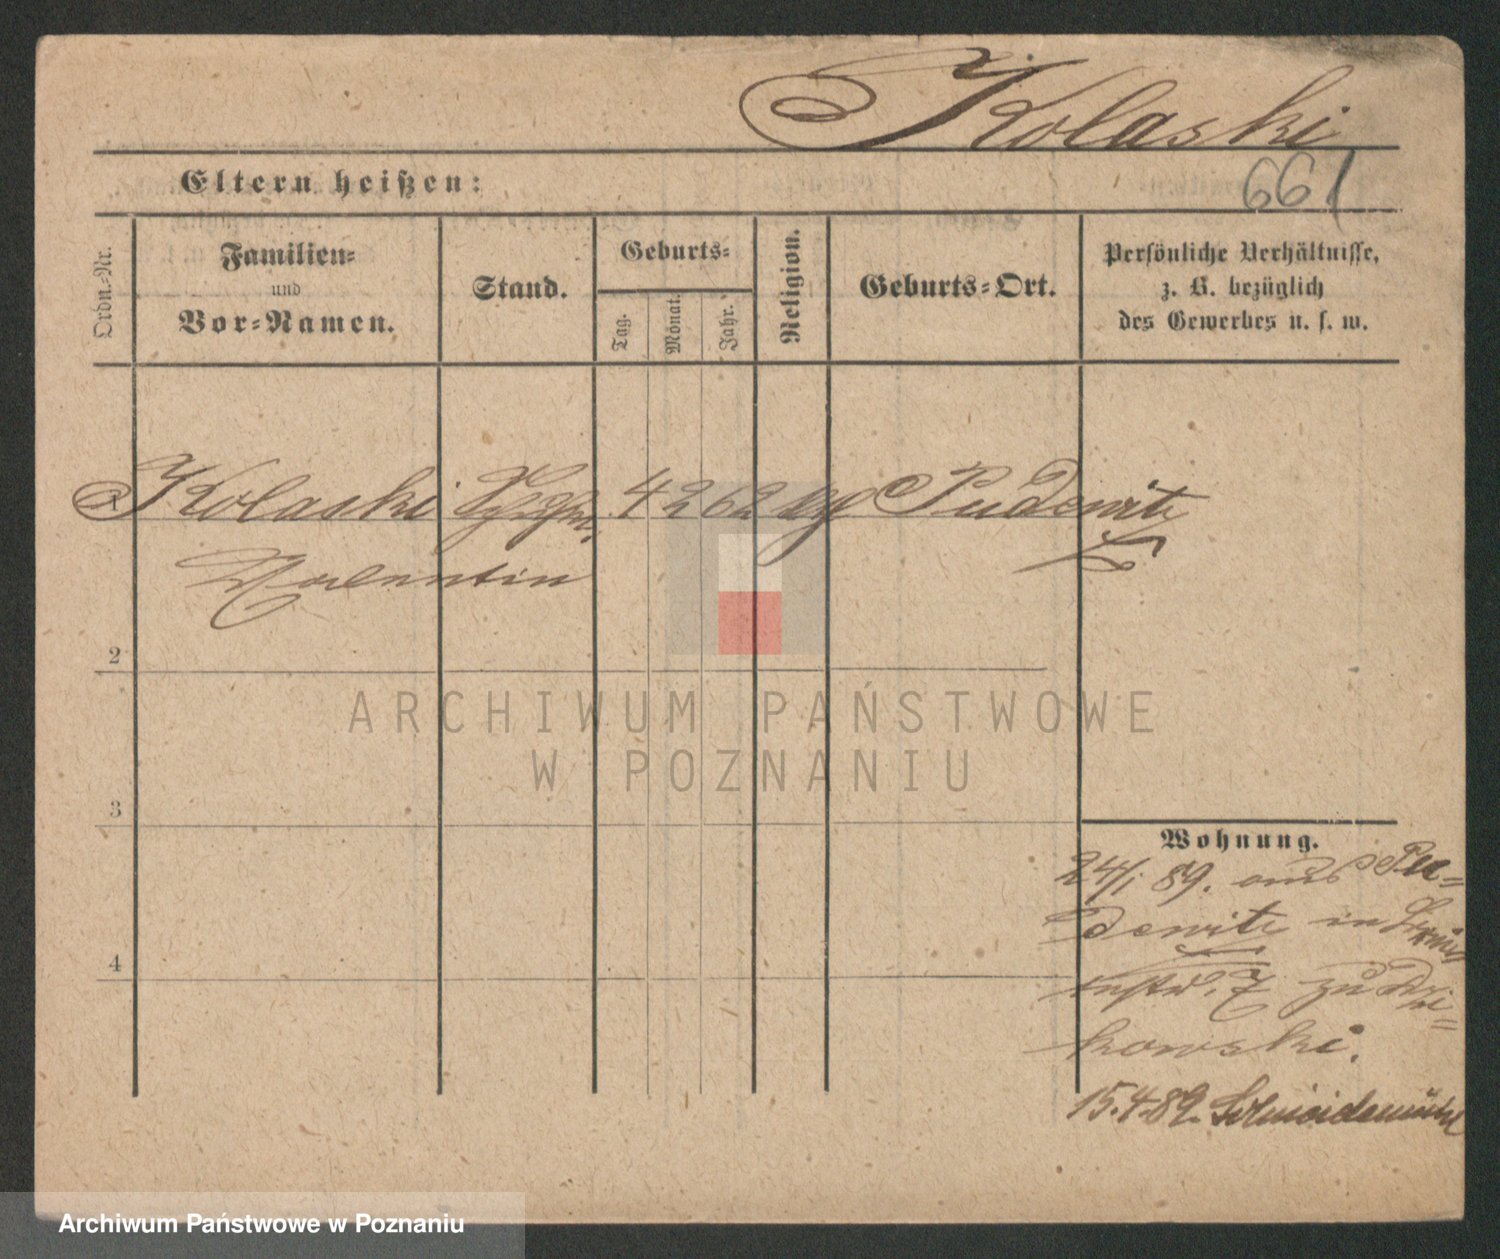 Kolaski
661
Eltern heißen:
Ordn.-Nr.
Familien-
und
Vor-Namen.
Stand.
Geburts-
Tag.
Monat.
Jahr.
Religion.
Geburts-Ort.
Persönliche Verhältnisse,
z. B. bezüglich
des Gewerbes u. s. w.
1 Kolaski 4 2 62 kgl Pudewitz
Valentin
2
3
4
ARCHIWUM PAŃSTWOWE
W POZNANIU
Wohnung.
24/1 89. aus Pu-
dewitz in
7 zu
kowski.
15.4.89. Schneidemühl
Archiwum Państwowe w Poznaniu